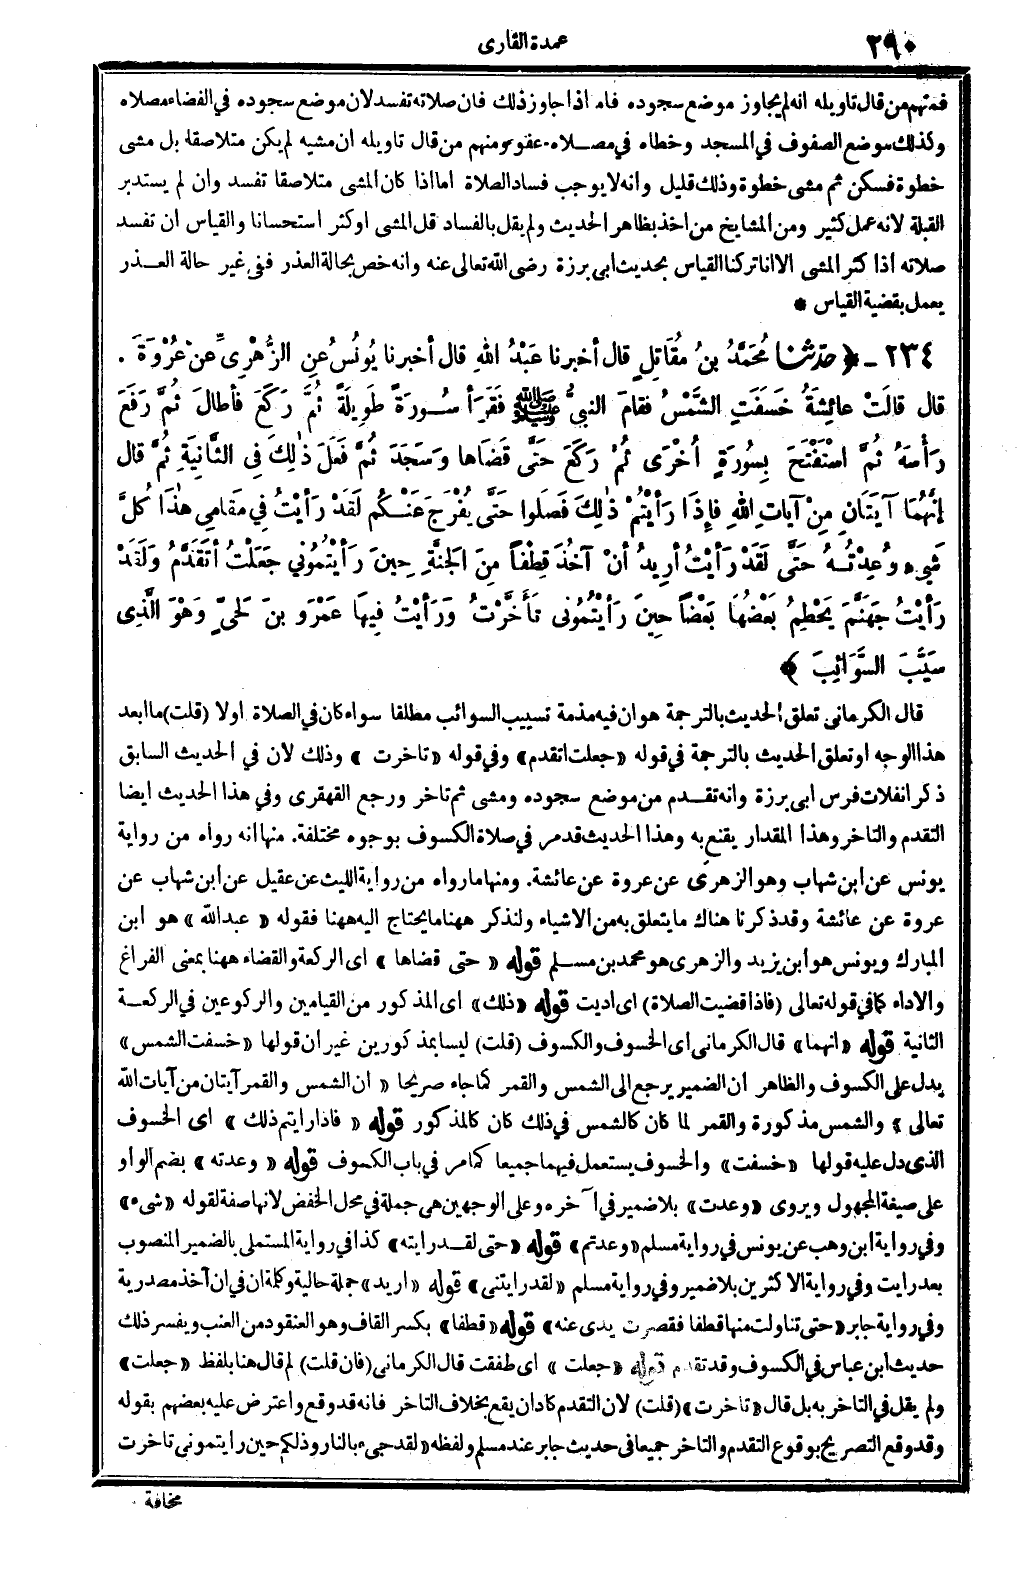 ٢٩٠
عمدة القارى
فمنهم من قال تاويله انه لم يجاوز موضع سجوده فاما اذا جاوز ذلك فان صلاته تفسد لان موضع سجوده في الفضاء مصلاه
وكذلك موضع الصفوف في المسجد وخطاه في مصلاه عفو ومنهم من قال تاويله ان مشيه لم يكن متلاصقا بل مشى
خطوة فسكن ثم مشى خطوة وذلك قليل وانه لا يوجب فساد الصلاة اما اذا كان المشى متلاصقا تفسد وان لم يستدبر
القبلة لانه عمل كثير ومن المشايخ من اخذ بظاهر الحديث ولم يقل بالفساد قل المشى او كثر استحسانا والقياس ان تفسد
صلاته اذا كثر المشى الا انا تركنا القياس بحديث ابى برزة رضى الله تعالى عنه وانه خص بحالة العذر ففى غير حالة العذر
يعمل بقضية القياس *
٢٣٤ - ﴿ حدثنا مُحَمَّدُ بنُ مُقَاتِلٍ قال أخبرنا عَبْدُ اللهِ قال أخبرنا يُونُسُ عنِ الزُّهْرِىِّ عنْ عُرْوَةَ .
قال قالَتْ عائِشَةُ خَسَفَتِ الشَّمْسُ فقامَ النبىُّ ﷺ فَقَرَأ سُورَةً طَوِيلَةً ثُمَّ رَكَعَ فأطالَ ثُمَّ رَفَعَ
رَأْسَهُ ثُمَّ اسْتَفْتَحَ بِسُورَةٍ أخْرَى ثُمَّ رَكَعَ حَتَّى قَضَاها وسَجَدَ ثُمَّ فَعَلَ ذٰلِكَ فى الثَّانِيَةِ ثُمَّ قال
إنَّهُمَا آيَتَانِ مِنْ آيَاتِ اللهِ فإِذَا رَأيْتُمْ ذٰلِكَ فَصَلوا حَتَّى يُفْرَجَ عَنْكُم لَقَدْ رَأيْتُ فِي مَقامِي هذَا كُلَّ
شَيْءٍ وُعِدْتُهُ حَتَّى لَقَدْ رَأيْتُ أرِيدُ أنْ آخُذَ قِطْفاً مِنَ الجَنَّةِ حِينَ رَأيْتُمُونِي جَعَلْتُ أتَقَدَّمُ ولَقَدْ
رَأيْتُ جَهَنَّمَ يَحْطِمُ بَعْضُهَا بَعْضاً حِينَ رَأيْتُمُونِى تأخَّرْتُ ورَأيْتُ فِيهَا عَمْرَو بنَ لُحَىٍّ وهْوَ الَّذِى
سَيَّبَ السَّوَائِبَ ﴾
قال الكرمانى تعلق الحديث بالترجمة هو ان فيه مذمة تسييب السوائب مطلقا سواء كان في الصلاة اولا (قلت) ما ابعد
هذا الوجه او تعلق الحديث بالترجمة في قوله «جعلت اتقدم» وفي قوله «تاخرت» وذلك لان في الحديث السابق
ذكر انفلات فرس ابى برزة وانه تقدم من موضع سجوده ومشى ثم تاخر ورجع القهقرى وفي هذا الحديث ايضا
التقدم والتاخر وهذا المقدار يقنع به وهذا الحديث قد مر في صلاة الكسوف بوجوه مختلفة. منها انه رواه من رواية
يونس عن ابن شهاب وهو الزهرى عن عروة عن عائشة. ومنها ما رواه من رواية الليث عن عقيل عن ابن شهاب عن
عروة عن عائشة وقد ذكرنا هناك ما يتعلق به من الاشياء ولنذكر ههنا ما يحتاج اليه ههنا فقوله «عبد الله» هو ابن
المبارك ويونس هو ابن يزيد والزهرى هو محمد بن مسلم قوله «حتى قضاها» اى الركعة والقضاء ههنا بمعنى الفراغ
والاداء كما في قوله تعالى (فاذا قضيت الصلاة) اى اديت قوله «ذلك» اى المذكور من القيامين والركوعين في الركعة
الثانية قوله «انهما» قال الكرمانى اى الخسوف والكسوف (قلت) ليسا بمذكورين غير ان قولها «خسفت الشمس»
يدل على الكسوف والظاهر ان الضمير يرجع الى الشمس والقمر كما جاء صريحا «ان الشمس والقمر آيتان من آيات الله
تعالى» والشمس مذكورة والقمر لما كان كالشمس في ذلك كان كالمذكور قوله «فاذا رايتم ذلك» اى الخسوف
الذى دل عليه قولها «خسفت» والخسوف يستعمل فيهما جميعا كما مر في باب الكسوف قوله «وعدته» بضم الواو
على صيغة المجهول ويروى «وعدت» بلا ضمير في آخره وعلى الوجهين هى جملة في محل الخفض لانها صفة لقوله «شىء»
وفي رواية ابن وهب عن يونس في رواية مسلم «وعدتم» قوله «حتى لقد رايته» كذا في رواية المستملى بالضمير المنصوب
بعد رايت وفي رواية الاكثرين بلا ضمير وفي رواية مسلم «لقد رايتنى» قوله «اريد» جملة حالية وكلمة ان في ان آخذ مصدرية
وفي رواية جابر «حتى تناولت منها قطفا فقصرت يدى عنه» قوله «قطفا» بكسر القاف وهو العنقود من العنب ويفسر ذلك
حديث ابن عباس في الكسوف وقد تقدم قوله «جعلت» اى طفقت قال الكرمانى (فان قلت) لم قال هنا بلفظ «جعلت»
ولم يقل في التاخر به بل قال «تاخرت» (قلت) لان التقدم كاد ان يقع بخلاف التاخر فانه قد وقع واعترض عليه بعضهم بقوله
وقد وقع التصريح بوقوع التقدم والتاخر جميعا فى حديث جابر عند مسلم ولفظه «لقد جىء بالنار وذلكم حين رايتمونى تاخرت
مخافة